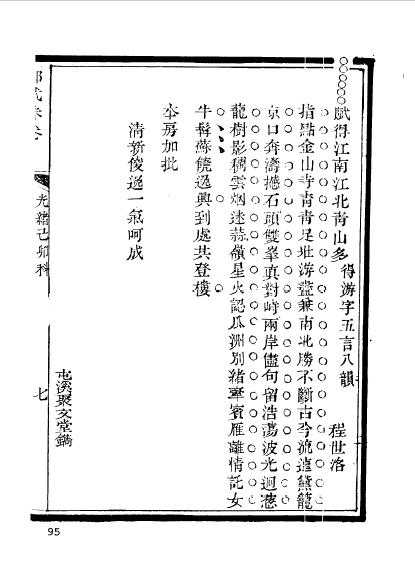 賦得江南江北青山多 得游字五言八韻 程世洛
指點金山寺青青足壯游蓋兼南北勝不斷古今流遠黛籠
京口奔濤撼石頭雙峯真對峙兩岸儘句留浩蕩波光迴蔥
龍樹影稠雲烟迷蒜嶺星火認瓜洲別緒牽賓雁離情託女
牛髯蘇饒逸興到處共登樓
本房加批
清新俊逸一氣呵成
屯溪聚文堂鐫
光緒己卯科
七
95